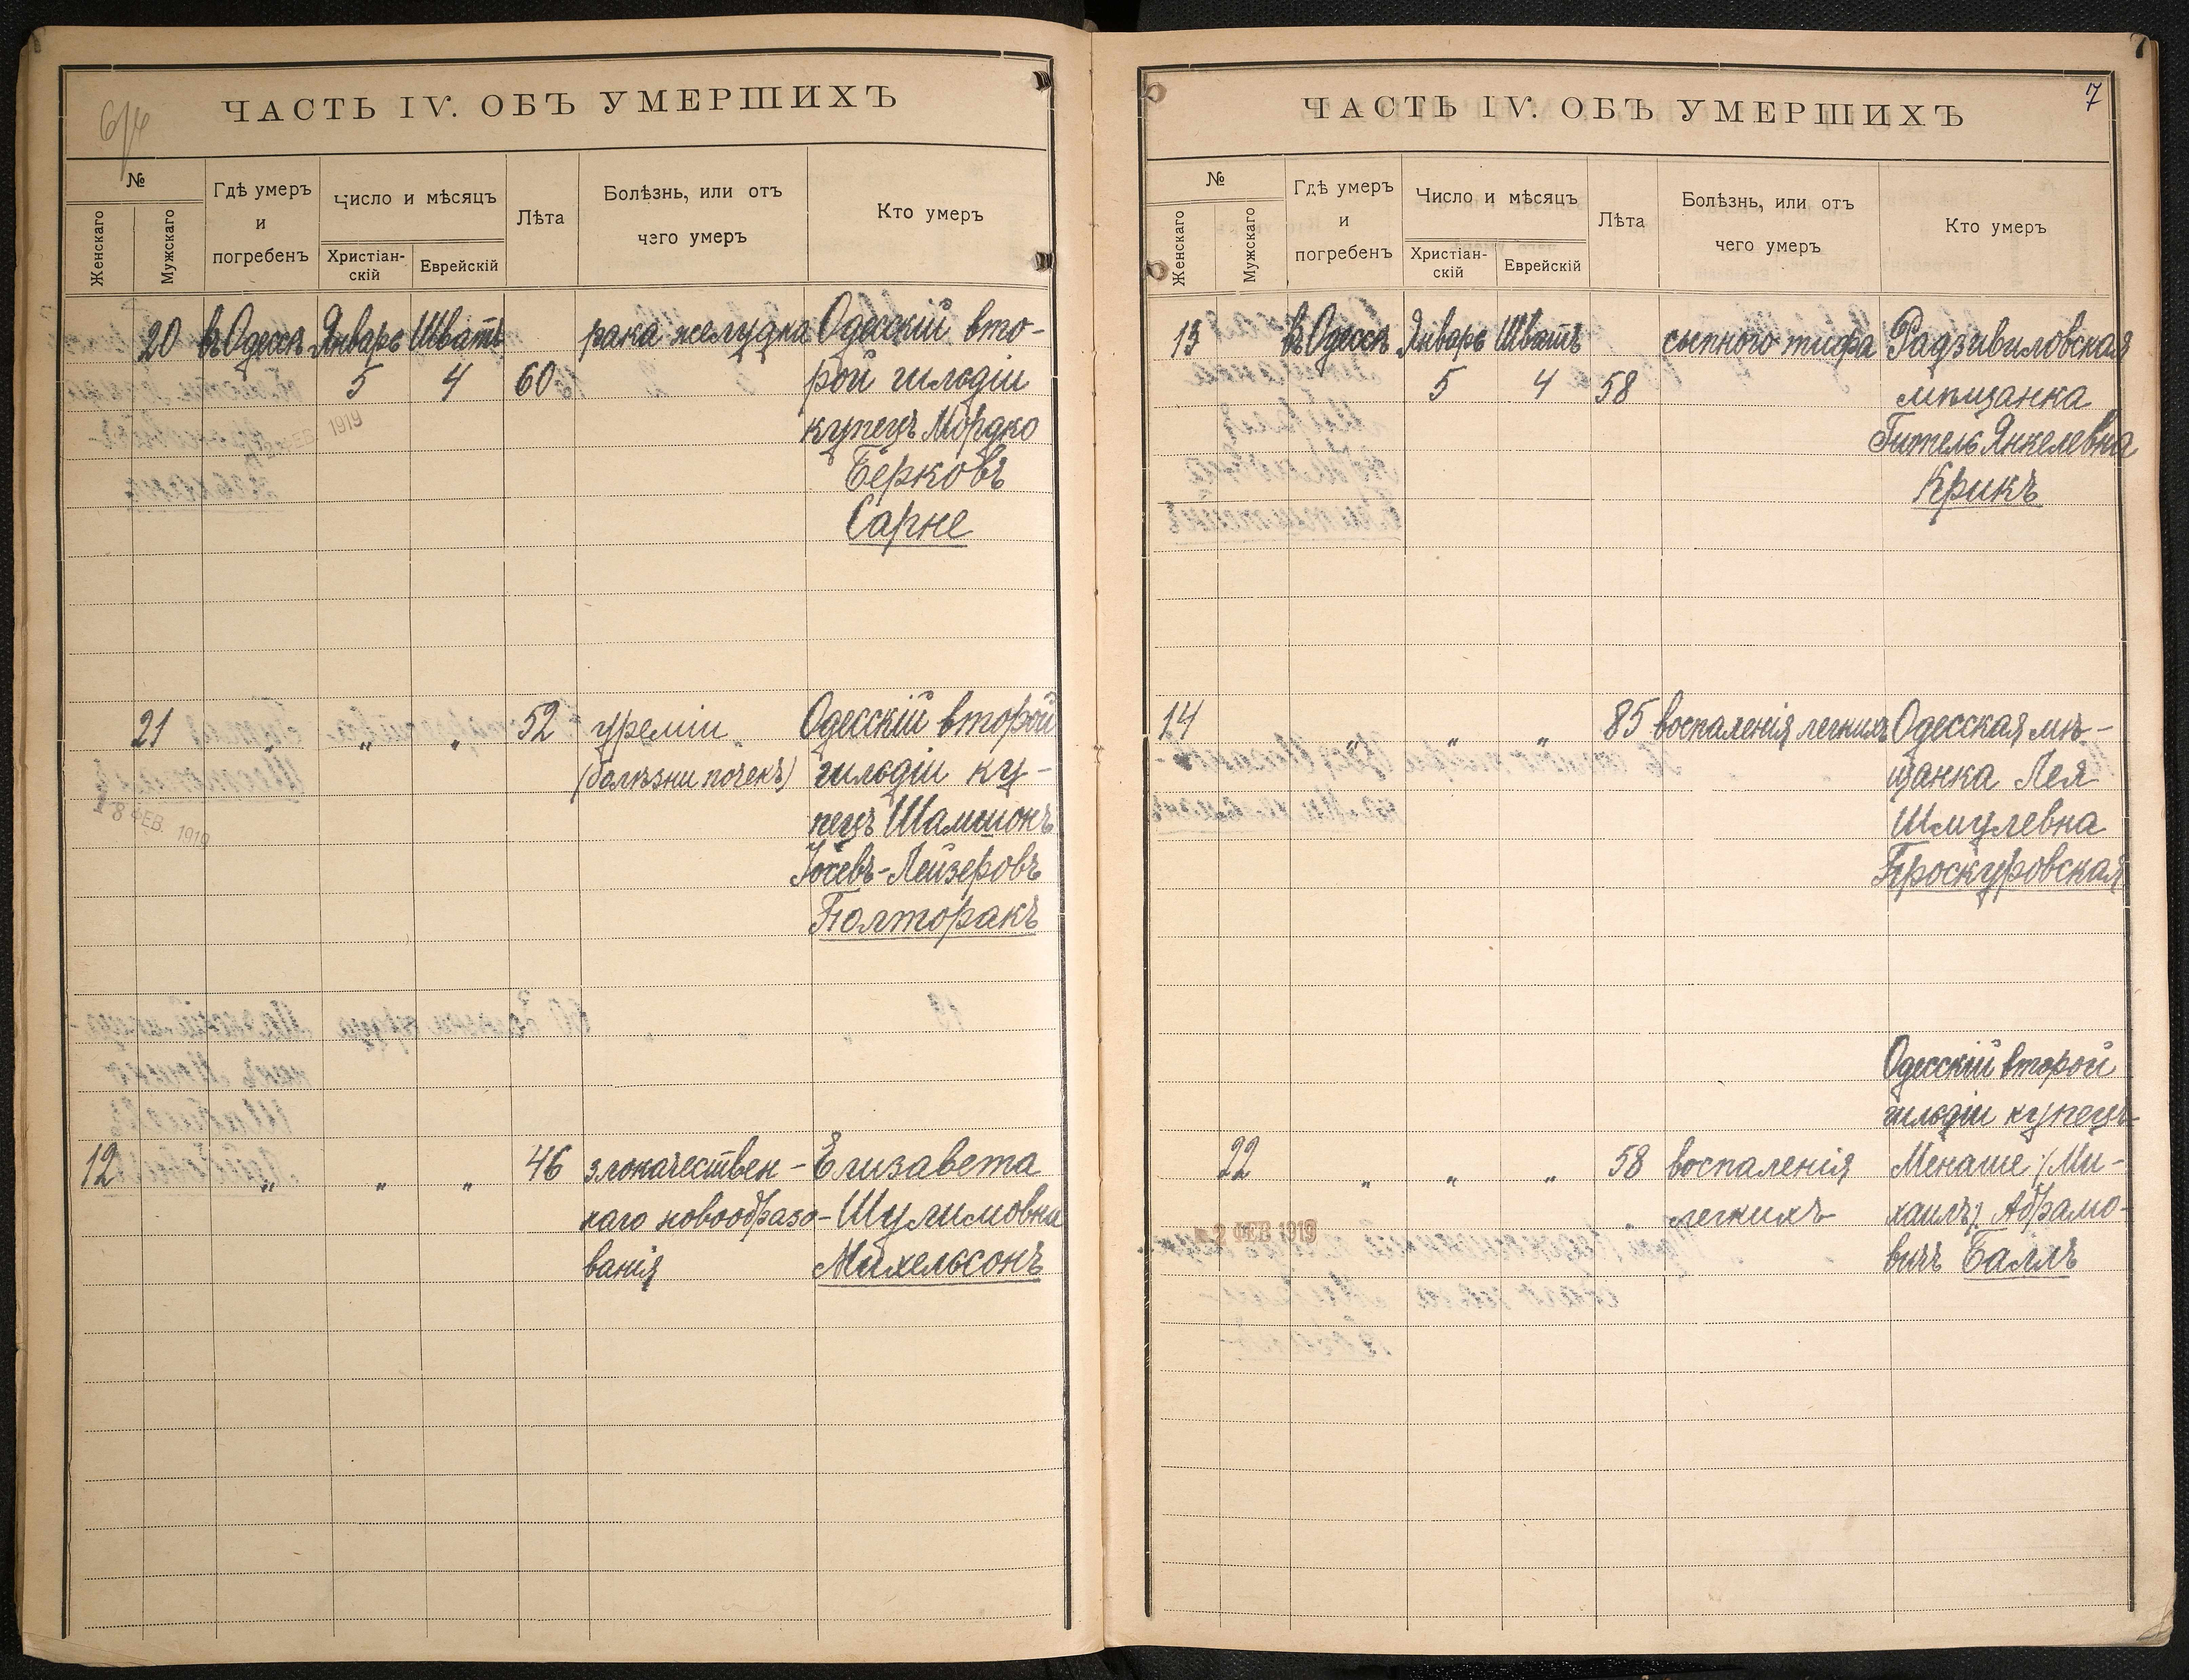 ЧАСТЬ IV. ОБЪ УМЕРШИХЪ
№
Женскаго
Мужскаго
Гдѣ умеръ
и
погребенъ
Число и мѣсяцъ
Христіан-
скій
Еврейскій
Лѣта
Болѣзнь, или отъ
чего умеръ
Кто умеръ
20 въ Одессѣ Январь Шватъ рака желудка Одесскій вто-
5 4 60 рой гильдіи
1919 купецъ Мордко
Берковъ
Сарне
21 " " " 52 уреміи Одесскій второй
(болѣзни почекъ) гильдіи ку-
18 ФЕВ. 1919 пецъ Шамшонъ
Іосевъ-Лейзеровъ
Полторакъ
12 " " " 46 злокачествен- Елизавета
наго новообразо- Шулимовна
ванія Михельсонъ
7
ЧАСТЬ IV. ОБЪ УМЕРШИХЪ
7
№
Женскаго
Мужскаго
Гдѣ умеръ
и
погребенъ
Число и мѣсяцъ
Христіан-
скій
Еврейскій
Лѣта
Болѣзнь, или отъ
чего умеръ
Кто умеръ
13 въ Одессѣ Январь Шватъ сыпного тифа Радзивиловская
5 4 58 мѣщанка
Гитель Янкелевна
Крикъ
14 " " " 85 воспаленія легкихъ Одесская мѣ-
щанка Лея
Шмулевна
Проскуровская
Одесскій второй
гильдіи купецъ
22 " " " 58 воспаленія Менаше /Ми-
легкихъ хаилъ/ Абрамо-
2 ФЕВ 1919
вичъ Баллъ